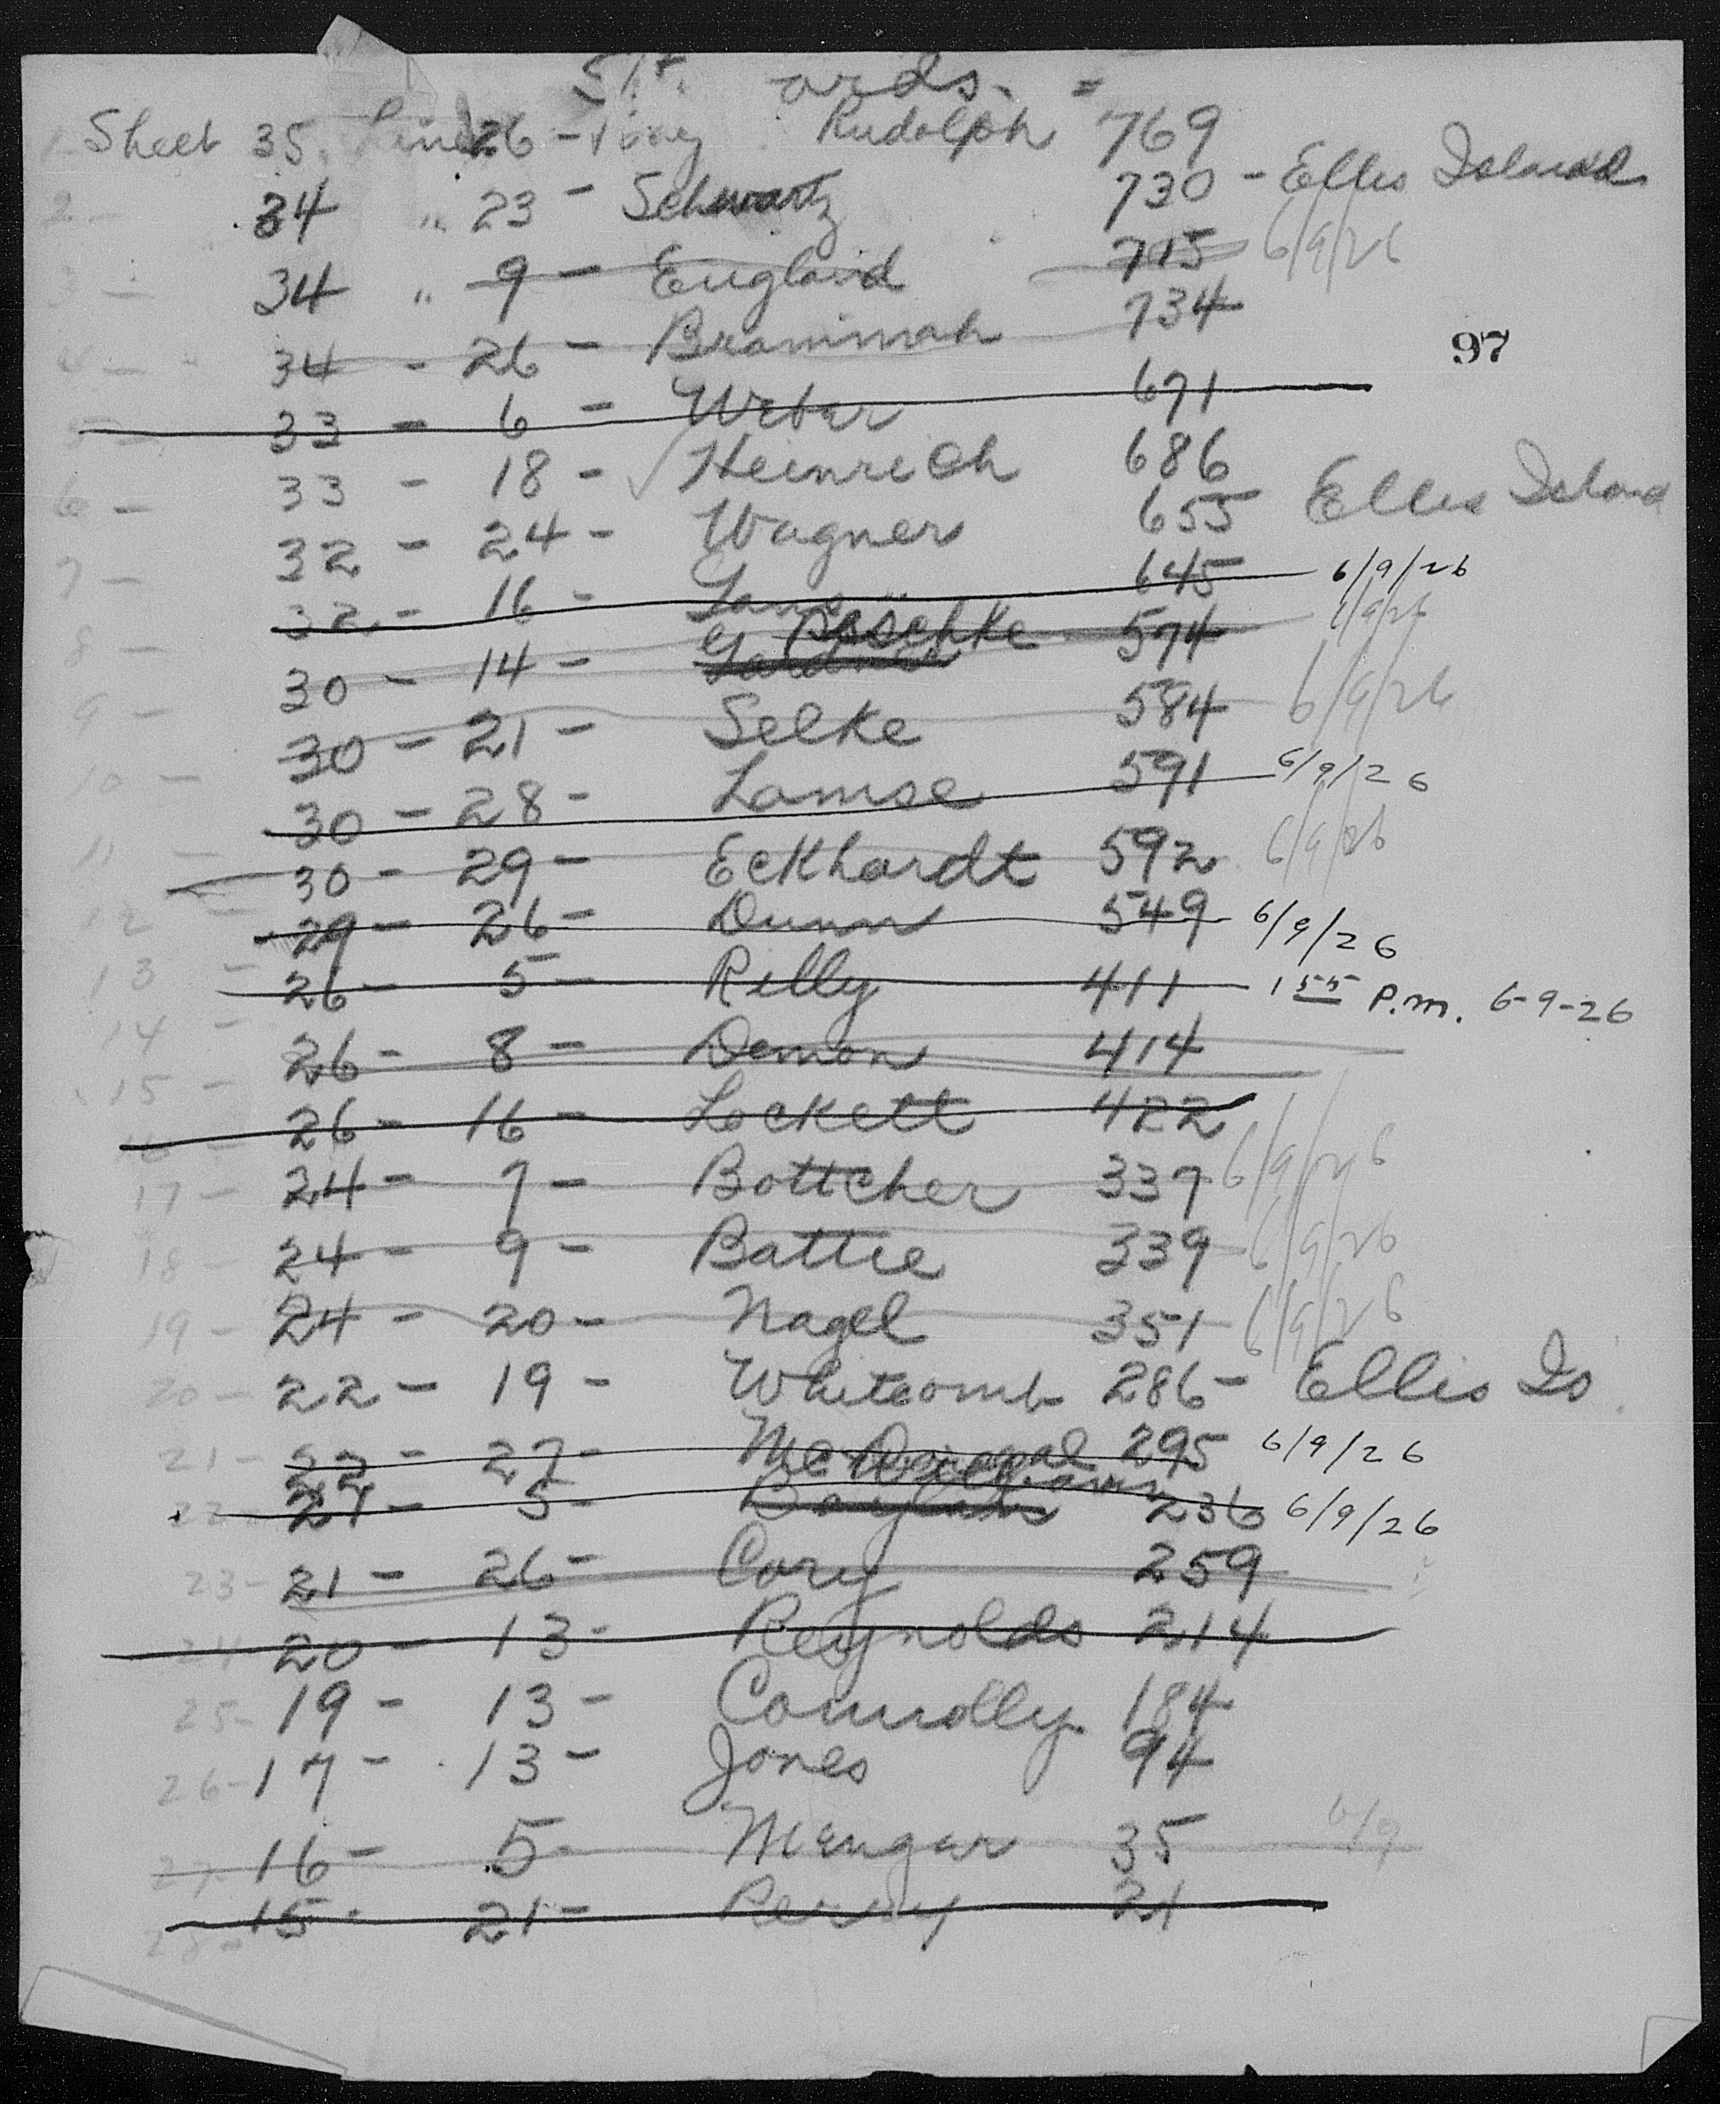 Sheet 35 Line 26 - Rudolph 769
2 - 34 " 23 - Schwartz 730 - Ellis Island
3 - 34 " 9 - England 715 6/9/26
34 - 26 - Brammah 734
97
33 - 6 - Weber 671
6 - 33 - 18 - ✓ Heinrich 686
7 - 32 - 24 - Wagner 655 Ellis Island
8 - 32 - 16 - 645 6/9/26
9 - 30 - 14 - Paschke 574 6/9/26
10 - 30 - 21 - Selke 584 6/9/26
11 - 30 - 28 - Lamse 591 6/9/26
12 - 30 - 29 - Eckhardt 592 6/9/26
13 - 29 - 26 - Dunn 549 6/9/26
14 - 26 - 5 - Rilly 411 - 1 55 P.m. 6-9-26
15 - 26 - 8 - Demon 414
16 - 26 - 16 - Lockett 422
17 - 24 - 7 - Bottcher 337 6/9/26
18 - 24 - 9 - Battie 339 6/9/26
19 - 24 - 20 - Nagel 351 6/9/26
20 - 22 - 19 - Whitcomb 286 - Ellis Is
21 - 22 - 27 - 295 6/9/26
22 - 21 - 5 - Williams 236 6/9/26
23 - 21 - 26 - Cory 259
24 - 20 - 13 - Reynolds 214
25 - 19 - 13 - Connolly 184
26 - 17 - 13 - Jones 94
27 - 16 - 5 - Mengar 35 6/9
28 - 15 - 21 - Perry 21